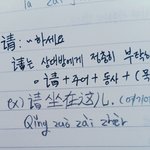 请 : ~하세요
请는 상대방에게 정중히 부탁하
• 请 + 주어 + 동사 + (목
ex) 请 坐在这儿. (여기에
Qǐng zuò zài zhèr